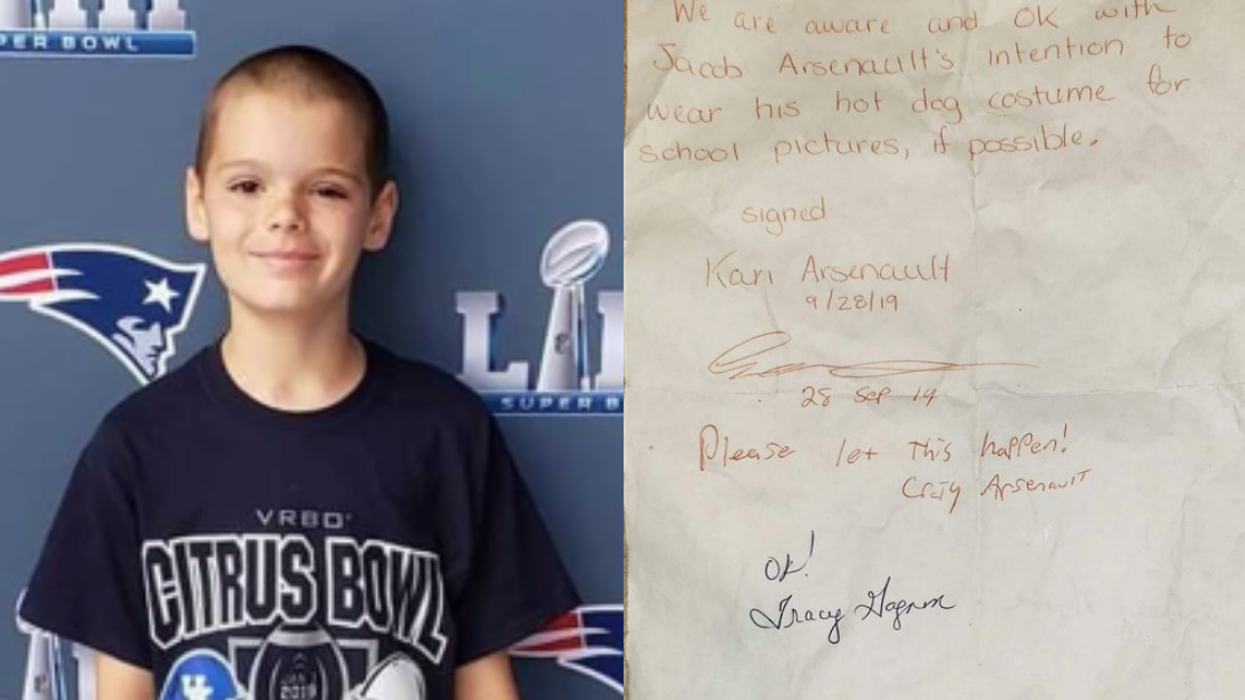 PER BOWL
SUPER B
VRBO
CITRUS BOWL
2019
We are aware and OK with
Jacob Arsenault's intention to
wear his hot dog costume for
school pictures, if possible.
signed
Kari Arsenault
9/28/19
28 Sep 19
Please let this happen!
Craig Arsenault
OK!
Tracy